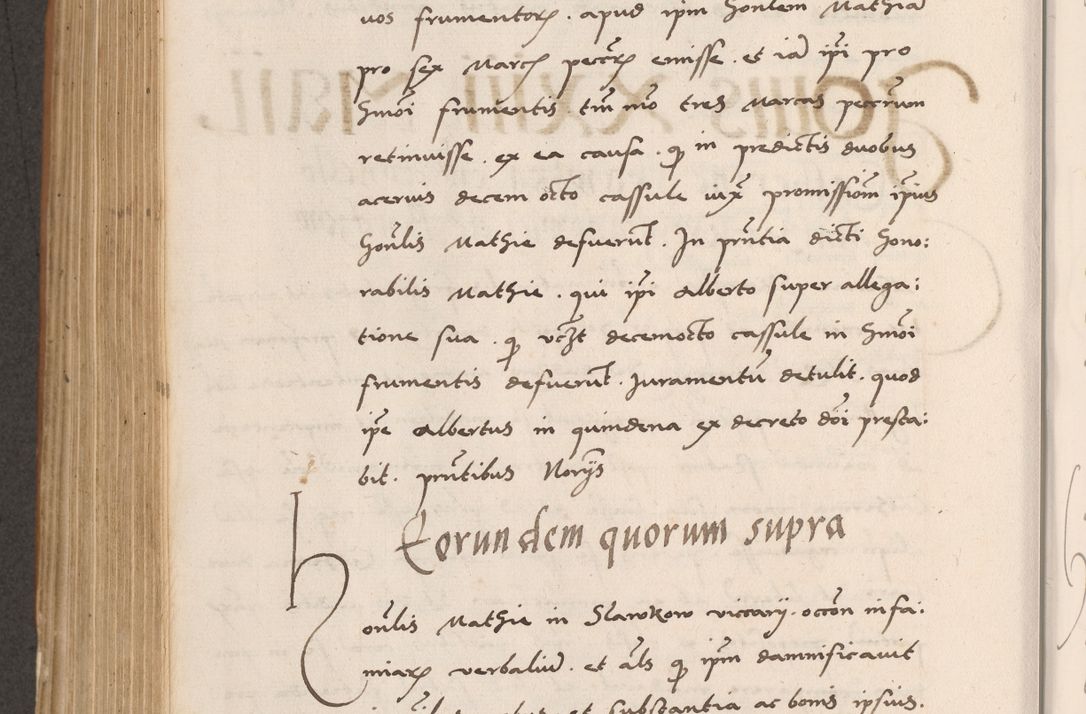 vos frumentorꝝ . apud ipm̄ honlem Mathiā
pro sex Marcꝭ peccꝝ emisse . et iā ipi pro
hmoi frumentis tm̄ mō tres Marcas peccrum
retinuisse . ex ea causa . ꝙ in predictis duobus
aceruis decem octo cassule iuxͣ promissiom̄ ipius
honlis Mathie defuerūt . In pn̄tia dicti hono:
rabilis Mathie . qui ipi Alberto super allega:
tione sua . ꝙ vcꝫt decemocto cassule in hmoi
frumentis defuerūt . Iuramentū detulit . quod
ipe Albertus in quindena ex decreto doi presta:
bit . pn̄tibus Norijs
Eorundem quorum supra
Honlis Mathie in Slawkow viccarij . occōn infa:
miarꝝ verbaliū . et als ꝙ ipm̄ damnificauit
et substantia ac bonis ipsius .